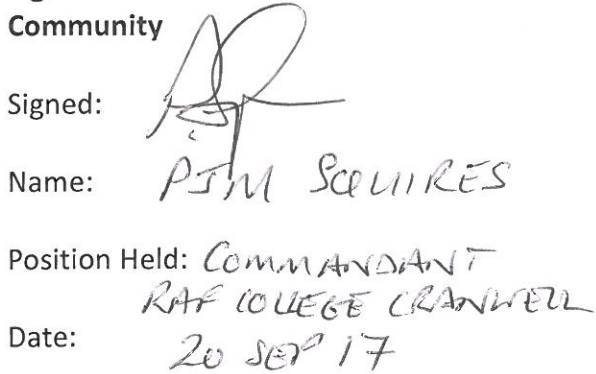 Community
Signed:
Name: PJM SQUIRES
Position Held: COMMANDANT
RAF COLLEGE CRANWELL
Date: 20 SEP 17